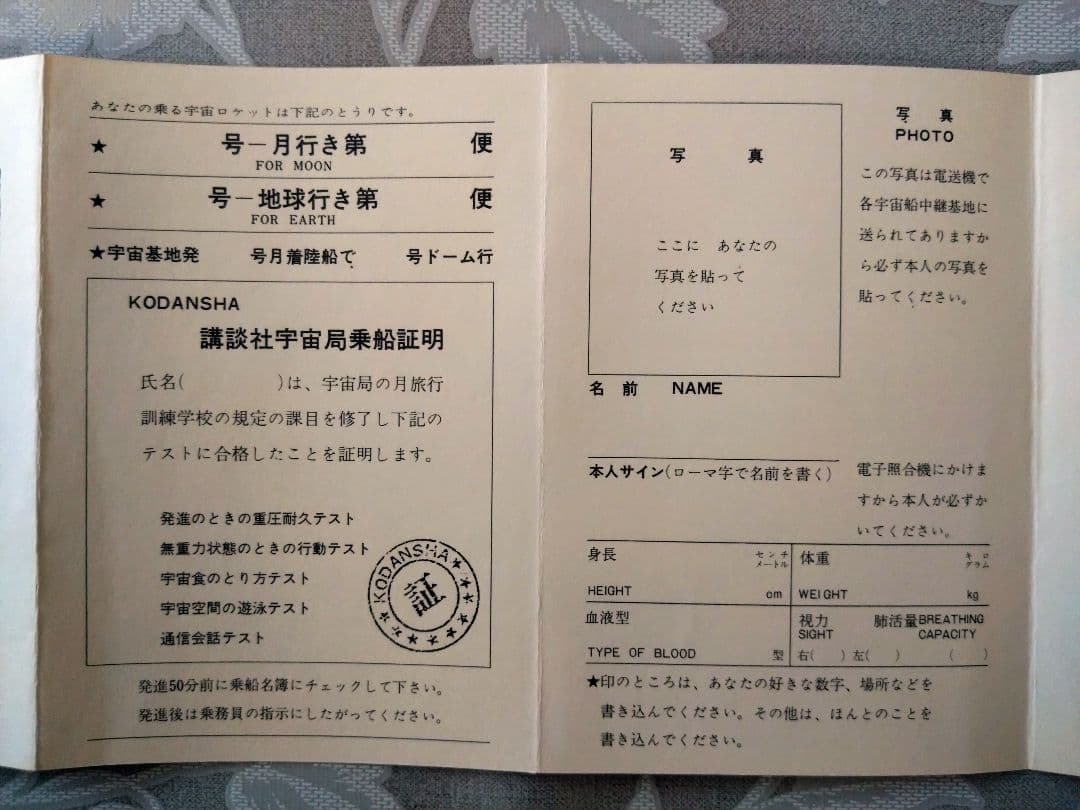 あなたの乗る宇宙ロケットは下記のとうりです。
★ 号－月行き第 便
FOR MOON
★ 号－地球行き第 便
FOR EARTH
★宇宙基地発 号月着陸船で 号ドーム行
KODANSHA
講談社宇宙局乗船証明
氏名( )は、宇宙局の月旅行
訓練学校の規定の課目を修了し下記の
テストに合格したことを証明します。
発進のときの重圧耐久テスト
無重力状態のときの行動テスト
宇宙食のとり方テスト
宇宙空間の遊泳テスト
通信会話テスト
KODANSHA
証
発進50分前に乗船名簿にチェックして下さい。
発進後は乗務員の指示にしたがってください。
写 真
ここに あなたの
写真を貼って
ください
写 真
PHOTO
この写真は電送機で
各宇宙船中継基地に
送られてありますか
ら必ず本人の写真を
貼ってください。
名 前 NAME
本人サイン(ローマ字で名前を書く)
電子照合機にかけま
すから本人が必ずか
いてください。
身長 センチメートル
HEIGHT cm
体重 キログラム
WEIGHT kg
血液型
TYPE OF BLOOD 型
視力 肺活量BREATHING
SIGHT CAPACITY
右( ) 左( ) ( )
★印のところは、あなたの好きな数字、場所などを
書き込んでください。その他は、ほんとのことを
書き込んでください。